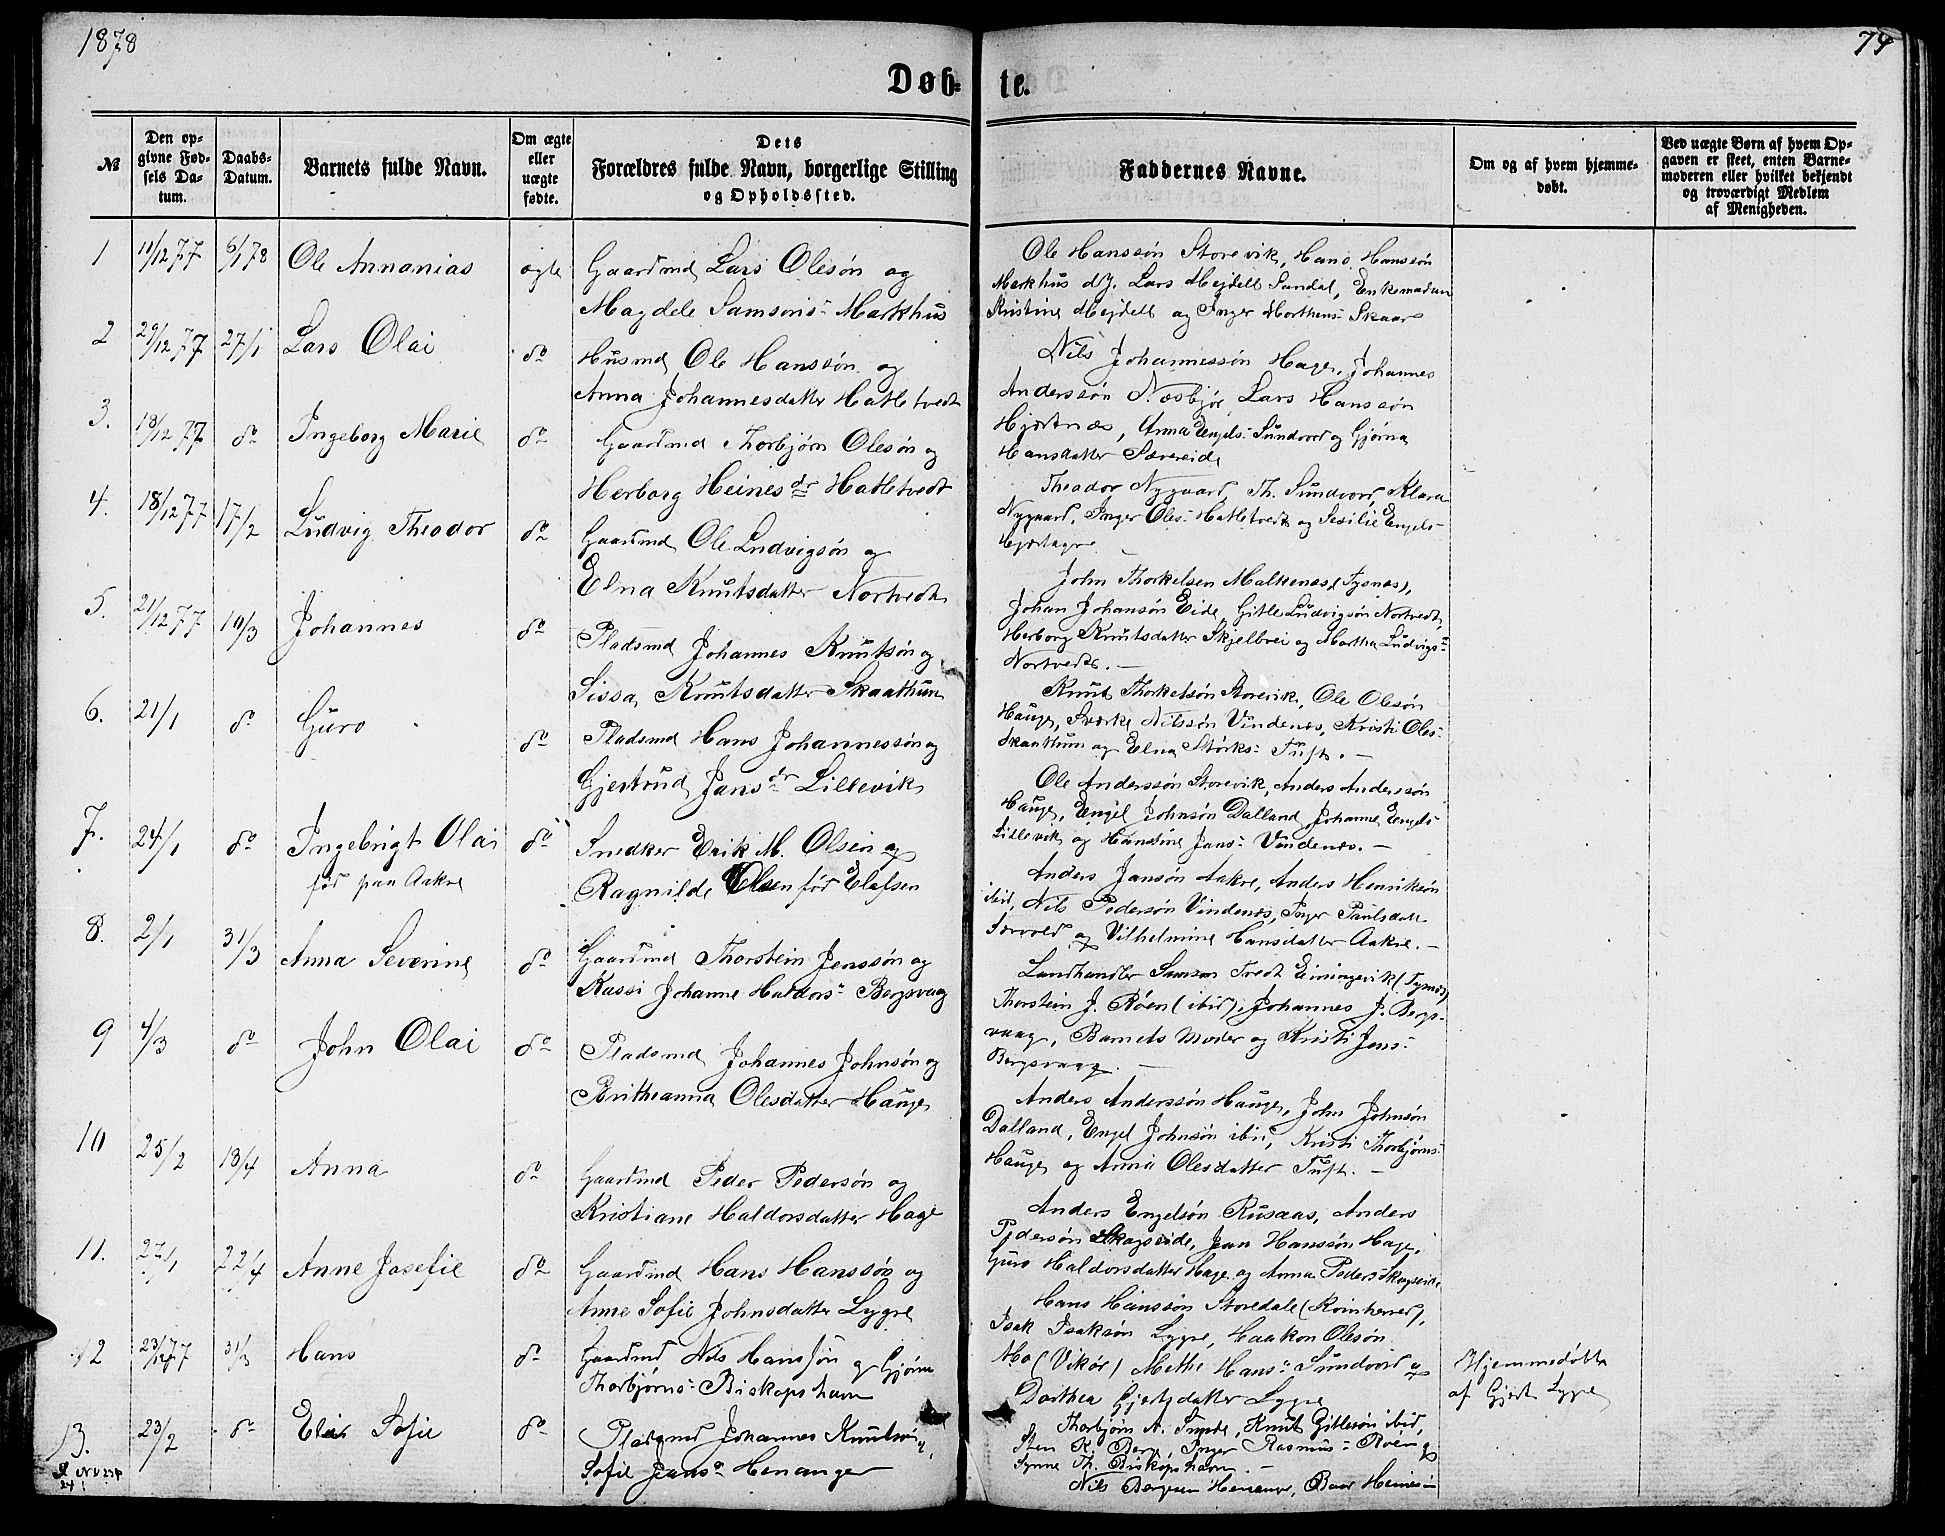 1878
74
Døb-
te.
№
Den op-
givne Fød-
sels Da-
tum.
Daabs-
Datum.
Barnets fulde Navn.
Om ægte
eller
uægte
fødte.
Dets
Forældres fulde Navn, borgerlige Stilling
og Opholdssted.
Faddernes Navne.
Om og af hvem hjemme-
døbt.
Ved uægte Børn af hvem Op-
gaven er skeet, enten Barne-
moderen eller hvilket bekjendt
og troværdigt Medlem
af Menigheden.
1 11/12 77 6/1 78 Ole Annanias ægte Gaardmd Lars Olesøn og
Magdele Samsons- Markhus
Ole Hanssøn Storevik, Hans Hanssøn
Markhus d.y. Lars Mejdell Sundal, Enkemadam
Kristine Mejdell og Inger Morthens- Skaar
2 29/12 77 27/1 Lars Olai do Husmd Ole Hanssøn og
Anna Johannesdatter Hatletvedt
Nils Johannessøn Hage, Johannes
Anderssøn Næsbjør, Lars Hanssøn
Hjertnæs, Anna Engels- Sundvord og Gjørna
Hansdatter Sævereide
3. 18/12 77 do Ingeborg Marie do Gaardmd Thorbjørn Olesøn og
Herborg Heinesdr Hatletvedt
Theodor Nygaard, Th. Sundvord, Klara
Nygaard, Inger Oles- Hatletvedt og Sesilie Engels-
4. 18/12 77 17/2 Ludvig Theodor do Gaardmd Ole Ludvigsøn og
Elna Knutsdatter Nortvedt
John Thorkelsen Malkenæs (Tysnæs),
Johan Johansøn Eide, Gitle Ludvigsøn Nortvedt,
Herborg Knutsdatter Skjelbrei og Martha Ludvigs-
Nortvedt. —
5. 21/12 77 10/3 Johannes do Pladsmd Johannes Knutsøn og
Sissa Knutsdatter Skaathun
Knut Thorkelsøn Storevik, Ole Olesøn
Hauge, Sværke Nilssøn Vindenes, Kristi Oles-
Skaathun og Elna Størks- Tuft. —
6. 21/1 do Guro do Pladsmd Hans Johannessøn og
Gjertrud Jansdr Lillevik
Ole Anderssøn Storevik, Anders Anderssøn
Hauge, Engel Johnsøn Dalland, Johanne Engels-
Lillevik og Hansine Jans- Vindenes. —
7. 24/1 do Ingebrigt Olai do Snedker Erik M. Olsen og
fød paa Aakre Ragnilde Olsen før Elafsen
Anders Jansøn Aakre, Anders Henriksøn
ibid, Nils Pedersøn Vindenes, Inger Paulsdatt.
og Vilhelmine Hansdatter Aakre. —
8. 2/1 31/3 Anna Severine do Gaardmd Thorstein Jenssøn og
Kassi Johanne Haldors- Bergsvaag
Landhandler Samson Tvedt Einingevik (Tysnæs)
Thorstein J. Røen (ibid), Johannes J. Bergs-
vaag, Barnets Moder og Kristi Jens-
Bergsvaag. —
9 4/3 do John Olai do Pladsmd Johannes Johnsøn og
Britheanna Olesdatter Hauge
Anders Anderssøn Hauge, John Johnsøn
Dalland, Engel Johnsøn ibid, Kristi Thorbjørns-
Hauge og Anna Olesdatter Tuft. —
10 25/2 18/4 Anna do Gaardmd Peder Pedersøn og
Kristiane Haldorsdatter Hage
Anders Engelsøn Rusaas, Anders
Pedersøn Skogseide, Jean Hanssøn Hage,
Guro Haldorsdatter Hage og Anna Peders- Skogseide
11. 27/1 22/4 Anne Josefie do Gaardmd Hans Hanssøn og
Anne Sofie Johnsdatter Lygre
Hans Hanssøn Storedale (Kvinherred),
Isak Isaksøn Lygre, Haakon Olesøn
Mo (Vikør) Methe Hans- Sundvord og
Dorthea Gjertsdatter Lygre
12 23/12 77 31/3 Hans do Gaardmd Nils Hanssøn og Gjørna
Thorbjørns- Biskopshavn
Thorbjørn A. Tvede, Knut Gitlesøn ibid,
Sten K. Berg, Inger Rasmus- Røen og
Synne Th. Biskopshavn. —
Hjemmedøbt
af Gjert Lygre
13. 23/2 do Elis Sofie do Pladsmd Johannes Knutsøn og
Sofie Jensdr Henanger
Nils Børgesen Henanger, Baar Heines-